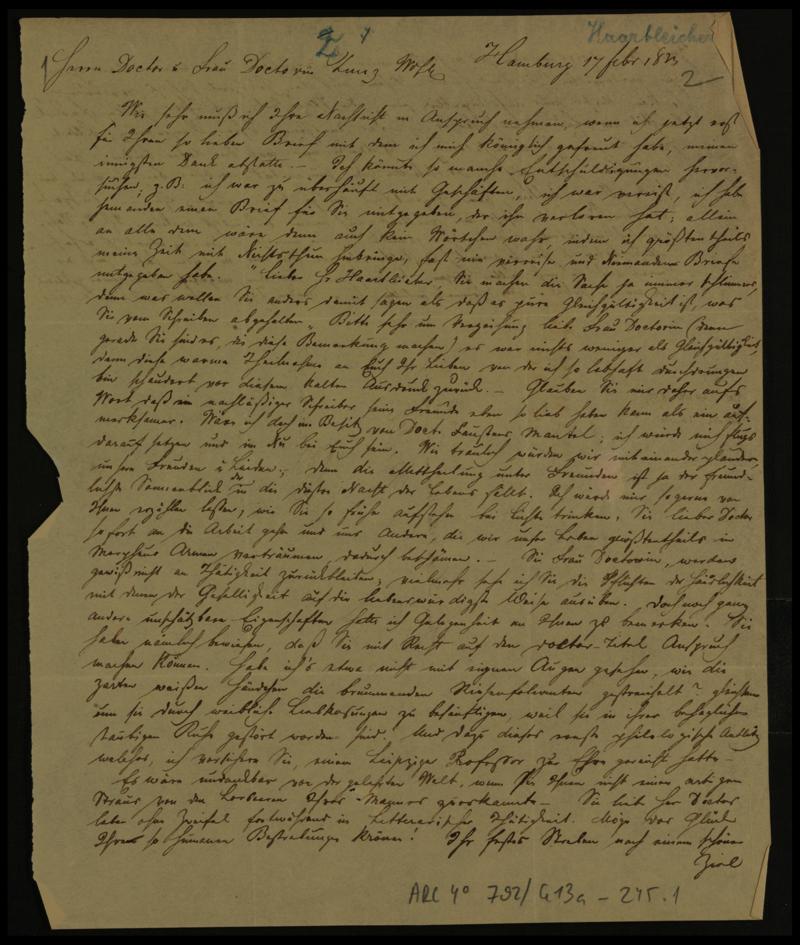 Haarbleicher
2
Hamburg 17 febr 1823
Herrn Doctor & Frau Doctorin Zunz Wohl
Wie sehr muß ich Ihre Nachsicht in Anspruch nehmen, wenn ich jetzt erst
für Ihren so lieben Brief mit dem ich mich königlich gefreut habe, meinen
innigsten Dank abstatte. – Ich könnte so manche Entschuldigungen hervor-
suchen, z. B: ich war zu überhäuft mit Geschäften, ich war verreist, ich habe
jemanden einen Brief für Sie mitgegeben, der ihn verloren hat; allein
an alle dem wäre denn auch kein Wörtchen wahr, indem ich größtentheils
meine Zeit mit Nichtsthun hinbringe, fast nie verreise und Niemandem Briefe
mitgegeben habe. "Lieber Hr Haarbleicher Sie machen die Sache ja immer schlimmer,
denn was wollen Sie anders damit sagen als daß es pure Gleichgültigkeit ist, was
Sie vom Schreiben abgehalten" Bitte sehr um Verzeihung liebe Frau Doctorin (denn
gerade Sie sind es, die diese Bemerkung machen) es war nichts weniger als Gleichgültigkeit,
denn diese warme Theilnahme an Euch Ihr Lieben von der ich so lebhaft durchdrungen
bin schaudert vor diesem kalten Ausdruck zurück. – Glauben Sie mir daher aufs
Wort daß ein nachläßiger Schreiber seine Freunde eben so lieb haben kann als ein auf-
merksamer. Wäre ich doch im Besitz von Doct. Faustens Mantel; ich würde mich flugs
darauf setzen und im Nu bei Euch sein. Wie traulich würden wir mit einander plaudern
unsere Freuden & Leiden; denn die Mittheilung unter Freunden ist ja der freund-
lichste Sonnenblick der in die düstre Nacht des Lebens fällt. Ich würde mir so gerne von
Ihnen erzählen lassen, wie Sie so frühe aufstehn bei Lichte trinken, Sie lieber Doctor
sofort an die Arbeit gehn und uns Andere, die wir unser Leben größtentheils in
Morpheus Armen verträumen, dadurch beschämen. – Sie Frau Doctorin, werden
gewiß nicht an Thätigkeit zurückbleiben, vielmehr sehe ich Sie die Pflichten der Häuslichkeit
mit denen der Geselligkeit auf die liebenswürdigste Weise ausüben. Doch noch ganz
andere unschätzbare Eigenschaften hatte ich Gelegenheit an Ihnen zu bemerken. Sie
haben nämlich bewiesen, daß Sie mit Recht auf den Doctor-Titel Anspruch
machen können. Habe ich's etwa nicht mit eignen Augen gesehen, wie die
zarten weißen Händchen die brummenden Riesenfolianten gestreichelt? gleichsam
um sie durch weibliche Liebkosungen zu besänftigen, weil sie in ihrer behaglichen
staubigen Ruhe gestört worden sind. Und dazu dieses ernste philologische Antlitz
welches, ich versichere Sie, einem Leipziger Professor zur Ehre gereicht hätte –
Es wäre undankbar von der gelehrten Welt, wenn sie Ihnen nicht einen artigen
Straus von den Lorbeeren Ihres Mannes zuerkannte – Sie lieber Herr Doctor
leben ohne Zweifel fortwährend in Litterarischer Thätigkeit. Möge das Glück
Ihre so humanen Bestrebungen krönen! Ihr festes Streben nach einem schönen
Ziel
ARC 4° 792/G13a – 245.1